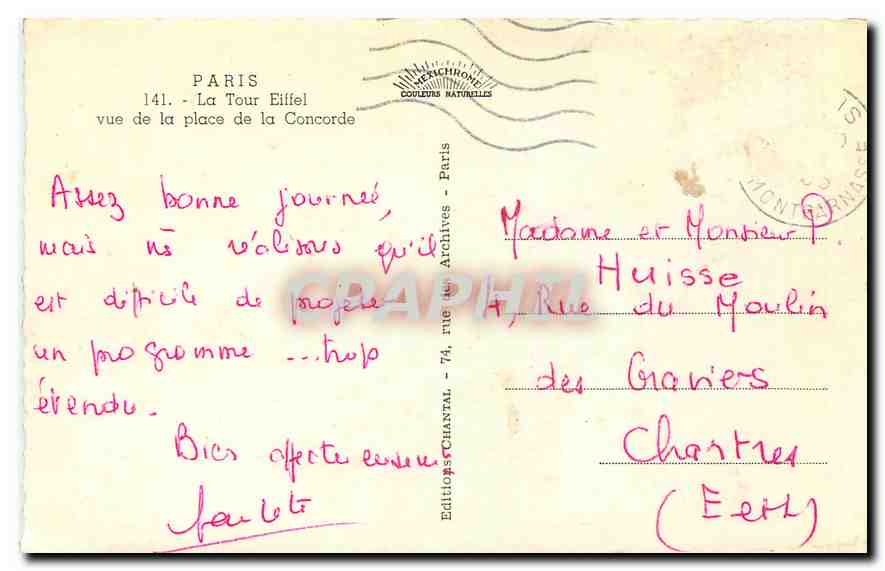 PARIS
141. - La Tour Eiffel
vue de la place de la Concorde
MEXICHROME
COULEURS NATURELLES
IS
MONTPARNASSE
Assez bonne journeé,
mais ns réalisons qu'il
est difficile de projeter
un programme ...trop
étendu.
Bien affectueusement
Editions CHANTAL - 74, rue des Archives - Paris
CPAPHIL
Madame et Monsieur P.
Huisse
4, Rue du Moulin
des Graviers
Chartres
(E et L)